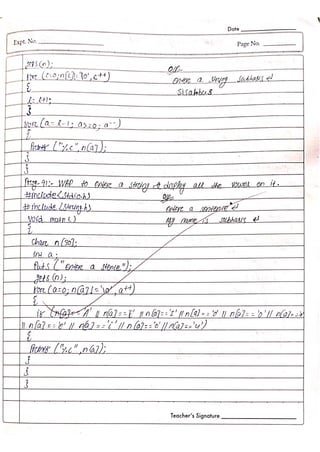 Date
Expt. No.
Page No.
gets(n);
for (c=0; n[c]!='\0', c++)
{
l=l+1;
}
for (a=l-1; a>=0; a--)
{
Printf ("%c", n[a]);
}
}
}
O/P:-
Enter a string
Prog-91:- WAP to enter a string & display all the vowel on it.
#include<stdio.h>
#include<string.h>
void main()
{
Char n[50];
int a;
Puts ("Enter a stence");
gets (n);
for (a=0; n[a]!='\0', a++)
{
if (n[a]=='A' || n[a]=='E' || n[a]=='I' || n[a]=='O' || n[a]=='U' || n[a]==
|| n[a]=='e' || n[a]=='i' || n[a]=='o' || n[a]=='u')
{
Printf ("%c", n[a]);
}
}
}
O/P:-
Enter a sentence
My name is
Teacher's Signature